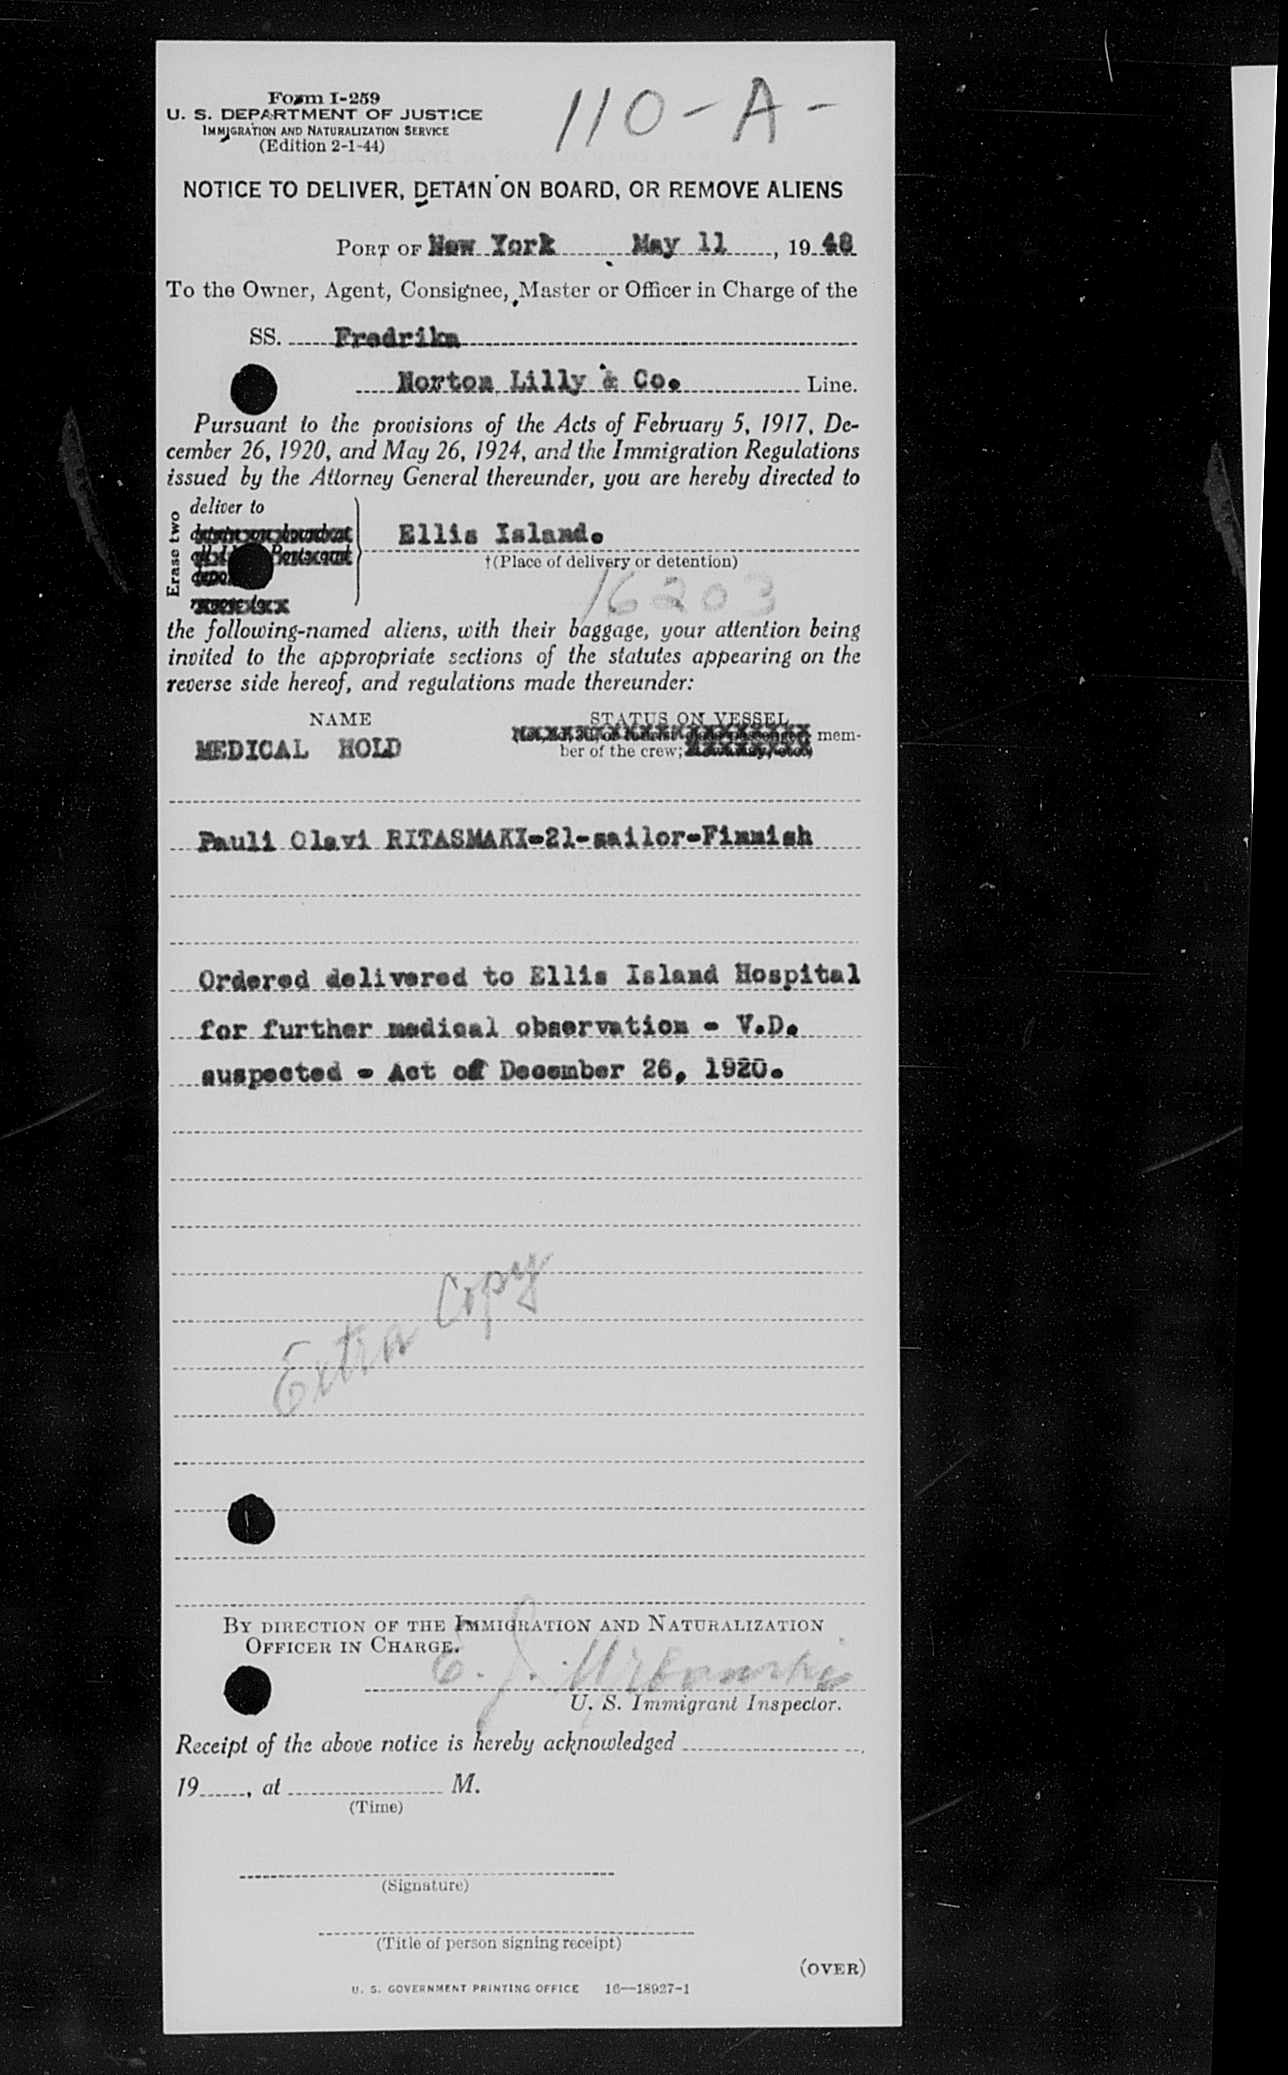 Form I-259
110-A-
U. S. DEPARTMENT OF JUSTICE
IMMIGRATION AND NATURALIZATION SERVICE
(Edition 2-1-44)
NOTICE TO DELIVER, DETAIN ON BOARD, OR REMOVE ALIENS
PORT OF New York May 11, 1948
To the Owner, Agent, Consignee, Master or Officer in Charge of the
SS. Fredrika
Norton Lilly & Co. Line.
Pursuant to the provisions of the Acts of February 5, 1917, De-
cember 26, 1920, and May 26, 1924, and the Immigration Regulations
issued by the Attorney General thereunder, you are hereby directed to
Erase two
deliver to
Ellis Island.
†(Place of delivery or detention)
16203
the following-named aliens, with their baggage, your attention being
invited to the appropriate sections of the statutes appearing on the
reverse side hereof, and regulations made thereunder:
NAME STATUS ON VESSEL
mem-
MEDICAL HOLD ber of the crew;
Pauli Olavi RITASMAKI-21-sailor-Finnish
Ordered delivered to Ellis Island Hospital
for further medical observation - V.D.
suspected - Act of December 26, 1920.
Extra Copy
BY DIRECTION OF THE IMMIGRATION AND NATURALIZATION
OFFICER IN CHARGE.
E. J. Urbanski
U. S. Immigrant Inspector.
Receipt of the above notice is hereby acknowledged
19, at M.
(Time)
(Signature)
(Title of person signing receipt)
(OVER)
U. S. GOVERNMENT PRINTING OFFICE 16—18927-1